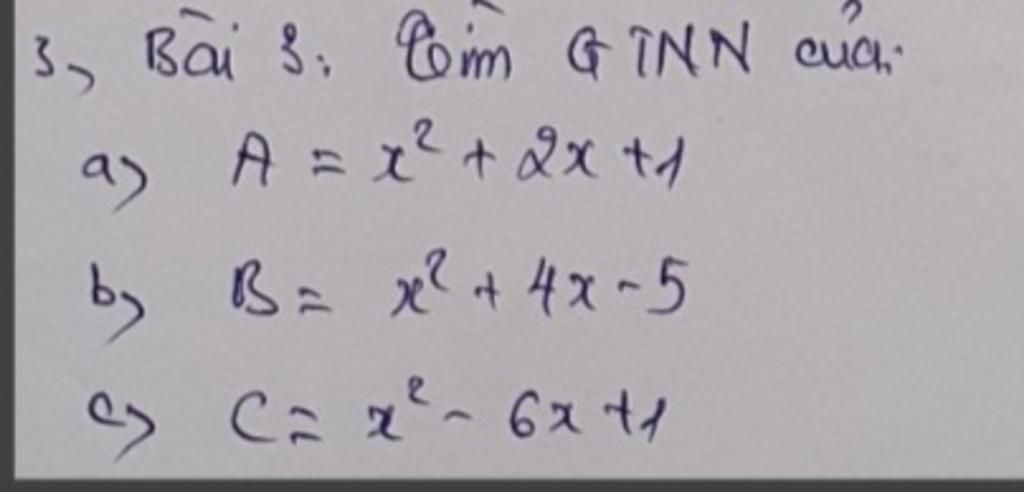 3, Bài 3: Tìm GTNN của:
a) A = x² + 2x + 1
b) B = x² + 4x - 5
c) C = x² - 6x + 1